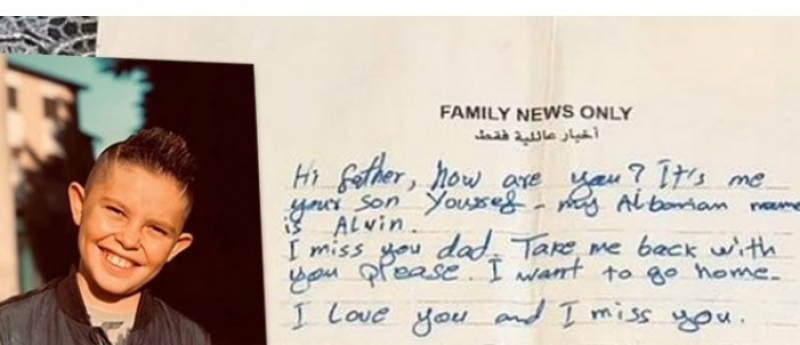 FAMILY NEWS ONLY
أخبار عائلية فقط
Hi father, how are you? It's me
your son Youssef - my Albanian name
is Alvin.
I miss you dad. Take me back with
you please. I want to go home.
I love you and I miss you.